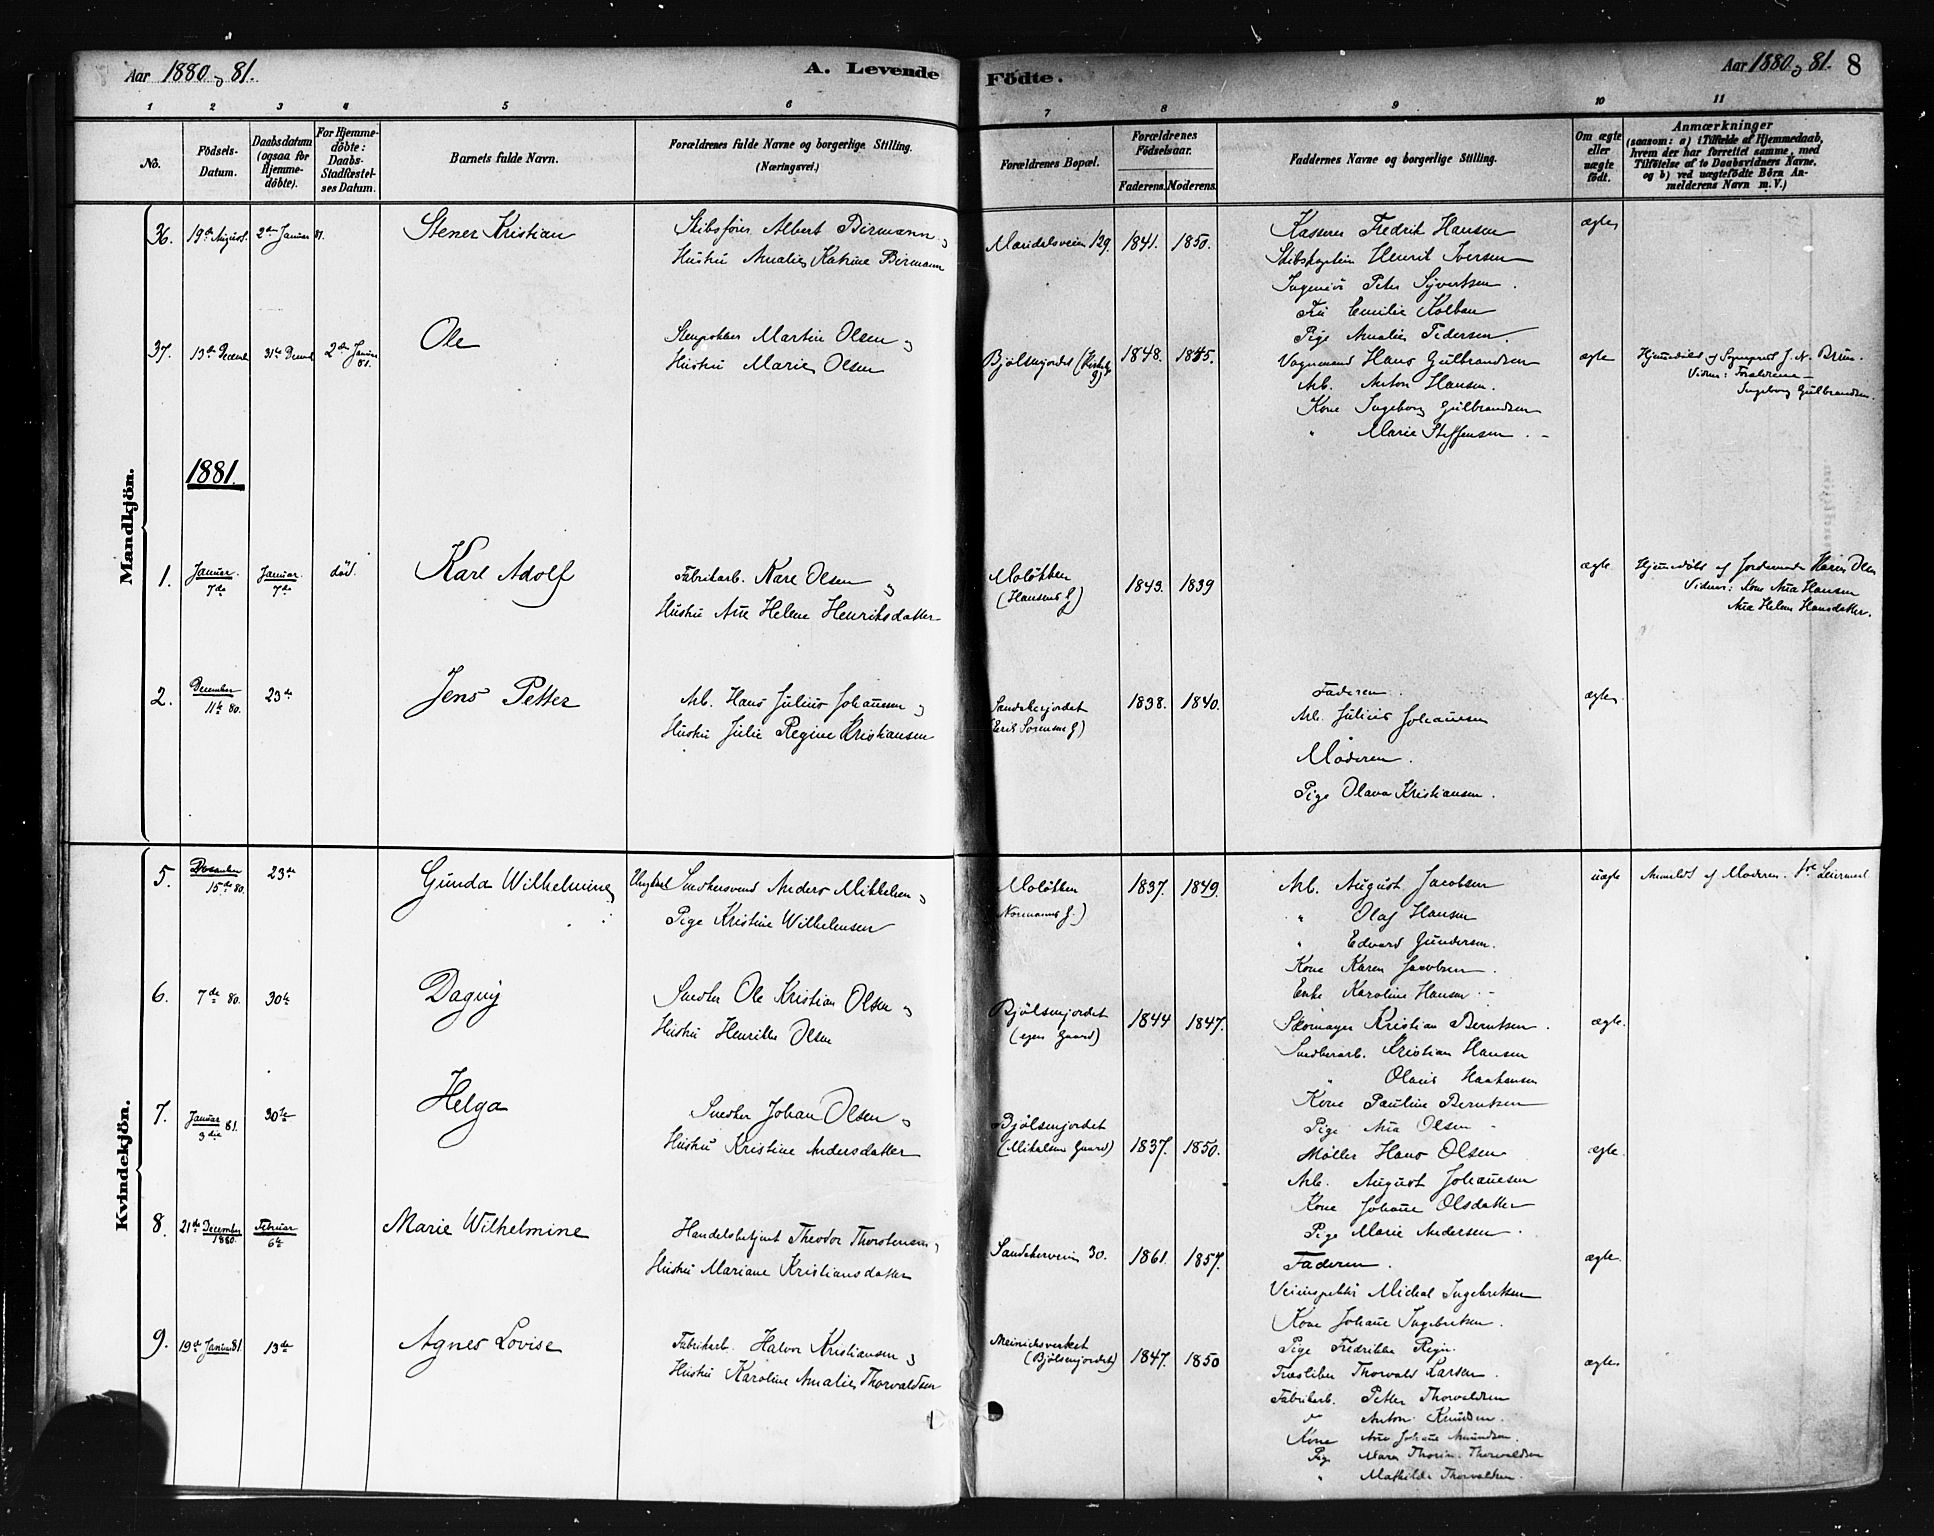 Aar 1880 & 81.
A. Levende
Födte.
Aar 1880 & 81.
8
1 2 3 4 5 6 7 8 9 10 11
No.
Födsels-Datum.
Daabsdatum (ogsaa for Hjemme-döbte).
For Hjemme-döbte: Daabs-Stadfæstel-ses Datum.
Barnets fulde Navn.
Forældrenes fulde Navne og borgerlige Stilling. (Næringsvei.)
Forældrenes Bopæl.
Forældrenes Födselsaar.
Faderens. Moderens.
Faddernes Navne og borgerlige Stilling.
Om ægte eller uægte födt.
Anmærkninger
(saasom: a) i Tilfælde af Hjemmedaab, hvem der har forrettet samme, med Tilföielse af to Daabsvidners Navne, og b) ved uægtefödte Börn Anmelderens Navn m. V.)
Mandkjön.
36. 19de August. 2den Januar 81. Stener Kristian
Skibsfører Albert Birmann &
Hustru Amalie Katrine Birmann
Maridalsveien 129. 1841. 1850.
Kasserer Fredrik Hansen
Skibskaptein Henrik Iversen
Ingeniør Peter Syvertsen.
Fru Emilie Kolban
Pige Amalie Pedersen.
ægte
37. 13de Decemb 31te Decemb 2den Januar 81. Ole
Stenpukker Martin Olsen &
Hustru Marie Olsen
Bjølsenjordet 1848. 1845.
Vognmand Hans Gulbrandsen
Arb. Anton Hansen.
Kone Ingeborg Gulbrandsen
" Marie Steffensen.
ægte
Hjemmedøbt af Sogneprest J. N. Brun.
Vidner: Forældrene
Ingeborg Gulbrandsen.
1881.
1. Januar 7de Januar 7de död. Karl Adolf
Fabrikarb. Karl Olsen &
Hustru Ane Helene Henriksdatter
Moløkken (Hansens G) 1843. 1839
ægte
Hjemmedøbt af Jordemoder Karen Olsen
Vidner: Kone Ana Hansen
Ana Helene Hansdatter.
2. December 11te 80. 23de Jens Petter
Arb. Hans Julius Johansen &
Hustru Julie Regine Kristiansen
Sandakerjordet (Erik Sørensens G) 1838. 1840.
Faderen.
Arb. Julius Johansen
Moderen.
Pige Olava Kristiansen.
ægte
Kvindekjön.
5. December 15de 80. 23de Gunda Wilhelmine
Ungkarl Snedkersvend Anders Mikkelsen &
Pige Kristine Wilhelmsen
Moløkken Normanns G.) 1837. 1849.
Arb. August Jacobsen
" Olaf Hansen
" Edvard Gundersen.
Kone Karen Jacobsen.
Enke Karoline Hansen
uægte
Anmeldt af Moderen. 1ste Leiermaal
6. 7de 80. 30te Dagny
Snedker Ole Kristian Olsen &
Hustru Henrikke Olsen
Bjølsenjordet (egen Gaard) 1844 1847.
Skomager Kristian Berntsen.
Snedkerarb. Kristian Hansen
" Olaus Haakensen
Kone Pauline Berntsen
Pige Ana Olsen
ægte.
7. Januar 3die 81. 30te Helga
Snedker Johan Olsen &
Hustru Kristine Andersdatter
Bjølsenjordet (Mikalsens Gaard) 1837. 1850.
Møller Hans Olsen
Arb. August Johansen
Kone Johane Olsdatter
Pige Marie Andersen.
ægte.
8. 21de December 1880. Februar 6te Marie Wilhelmine
Handelsbetjent Theodor Thorstensen &
Hustru Mariane Kristiansdatter
Sandakerveien 30. 1861. 1857.
Faderen.
Veiinspektør Michal Ingebretsen
Kone Johane Ingebretsen.
Pige Fredrikke
ægte
9. 19de Januar 81 13de Agnes Lovise
Fabrikarb. Halvor Kristiansen &
Hustru Karoline Amalie Thorvaldsen
(Bjølsenjordet) 1847. 1850
Træsliber Thorvald Larsen.
Fabrikarb. Petter Thorvaldsen
" Anton Knudsen.
Kone Ane Johane Amundsen.
Pige Maren Thorvaldsen
" Mathilde Thorvaldsen.
ægte